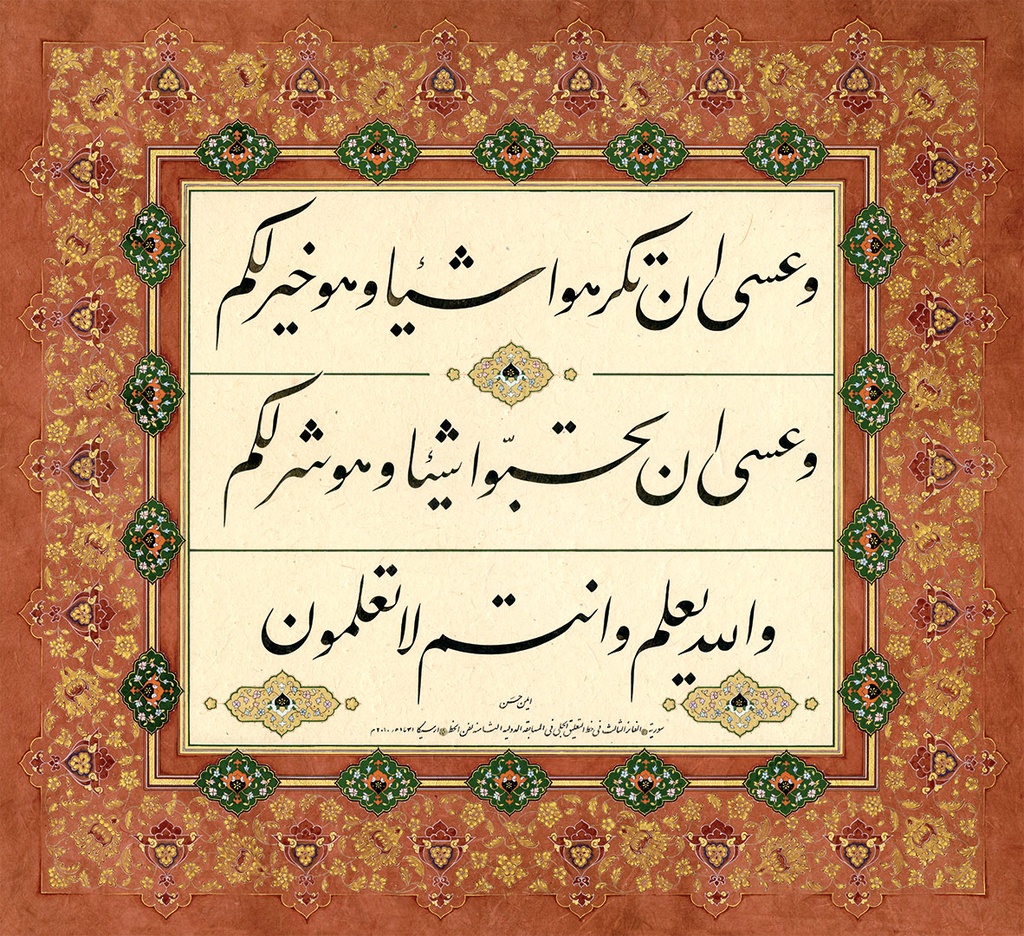 وعسى ان تكرهوا شيئا وهو خير لكم
وعسى ان تحبّوا شيئا وهو شر لكم
والله يعلم وانتم لا تعلمون
ايمن حسن
سورية الفائز الثالث في خط التعليق الجلي في المسابقة الدولية الثامنة لفن الخط ارسيكا ١٤٣١ه/٢٠١٠م